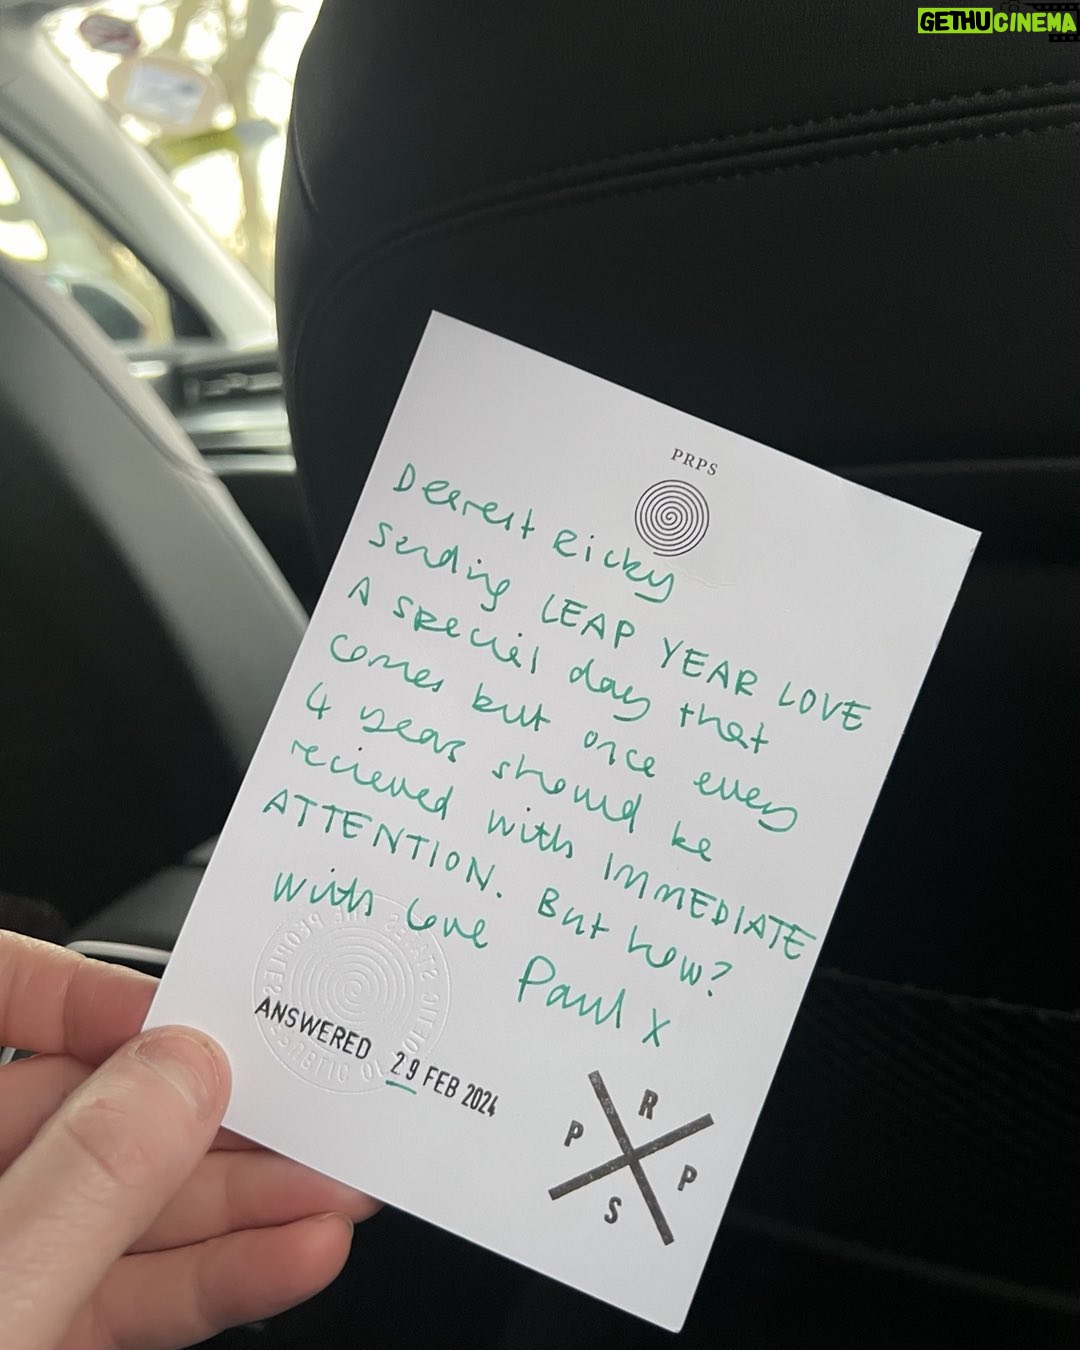 GETHUCINEMA
PRPS
Dearest Ricky
Sending LEAP YEAR LOVE
A special day that
comes but once every
4 years should be
recieved with IMMEDIATE
ATTENTION. But how?
with love Paul X
ANSWERED 29 FEB 2024
R
P P
S